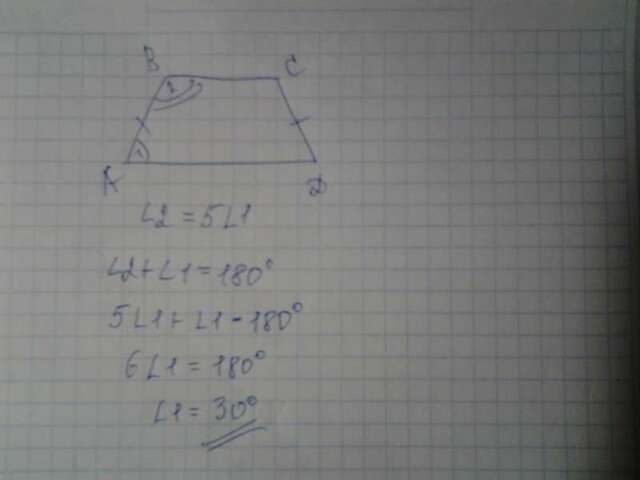 B C
2
1
A D
∠2 = 5∠1
∠2+∠1 = 180°
5∠1+∠1 = 180°
6∠1 = 180°
∠1 = 30°